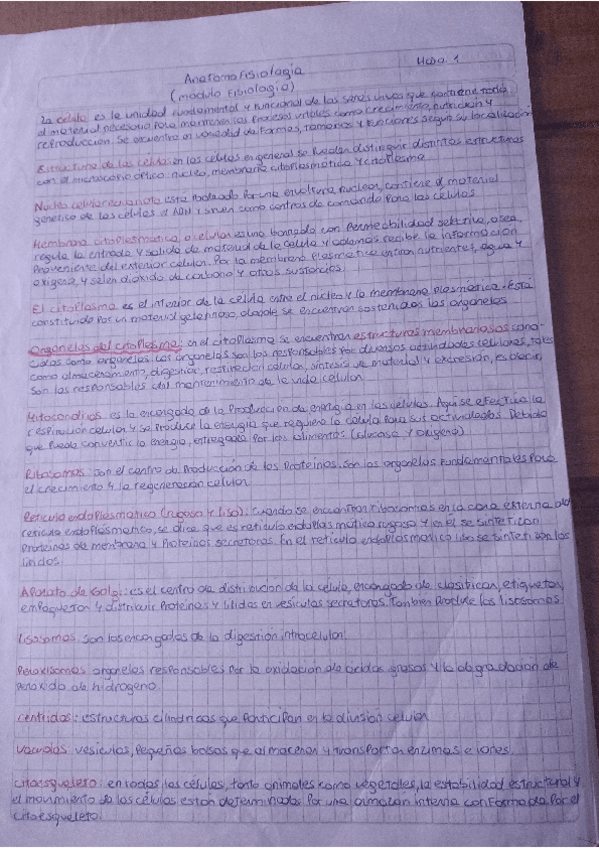 Anatomofisiología
Hoja. 1
(modulo Fisiología)
La celula es la unidad fundamental y funcional de los seres vivos que contiene todo
el material necesario para mantener los procesos vitales como crecimiento, nutrición y
reproducción. Se encuentra en variedad de formas, tamaños y funciones según su localización
Estructura de las celula: en las celulas en general se pueden distinguir distintas estructuras
con el microscopio óptico: nucleo, membrana citoplasmática y citoplasma
Nucleo celular eucarionota: esta rodeado por una envoltura nuclear, contiene el material
genetico de las celulas el ADN y sirven como centros de comando para las celulas
Membrana citoplasmatica o celular: es una barrera con Permeabilidad selectiva, o sea,
regula la entrada y salida de material de la celula y ademas recibe la información
Proveniente del exterior celular. Por la membrana plasmatica entran nutrientes, agua y
oxigeno, y salen dióxido de carbono y otras sustancias.
El citoplasma es el interior de la celula entre el nucleo y la membrana plasmatica. Está
constituido por un material gelatinoso, donde se encuentran sostenidos los organelos
Organelos del citoplasma: en el citoplasma se encuentran estructuras membranosas cono-
cidas como organelos. Los organelos son los responsables por diversas actividades celulares, tales
como almacenamiento, digestión, respiración celular, sintesis de material y excresión, es decir,
son los responsables del mantenimiento de la vida celular.
Mitocondrias es la encargada de la Producción de energía en las celulas. Aqui se efectua la
respiración celular y se produce la energia que requiere la celula para sus actividades. Debido
que Puede convertir la energia, entregada por los alimentos (Glucosa y Oxigeno)
Ribosomas son el centro de Producción de las Proteinas. son los organelos Fundamentales para
el crecimiento y la regeneración celular
Reticulo endoplasmatico (rugoso y liso): cuando se encuentran ribosomas en la cara externa del
reticulo endoplasmatico, se dice que es reticulo endoplasmático rugoso y en el se sintetizan
Proteinas de membrana y Proteinas secretoras. En el retículo endoplasmatico liso se sintetizan los
lípidos.
Aparato de Golgi: es el centro de distribucion de la celula, encargado de clasificar, etiquetar,
empaquetar y distribuir Proteinas y Lilidos en vesiculas secretoras. Tambien Produce los lisosomas.
Lisosomas son los encargados de la digestión intracelular
Peroxisomas organelos responsables Por la oxidación de ácidos grasos y la degradación de
peroxido de hidrogeno.
Centriolos: estructuras cilindricas que Participan en la division celular
Vacuolas vesiculas, Pequeñas bolsas que almacenan y transportan enzimas e iones.
Citoesqueleto: en todas las células, tanto animales como vegetales, la estabilidad estructural y
el movimiento de las celulas están determinados Por una armazon interna conformada Por el
citoesqueleto.